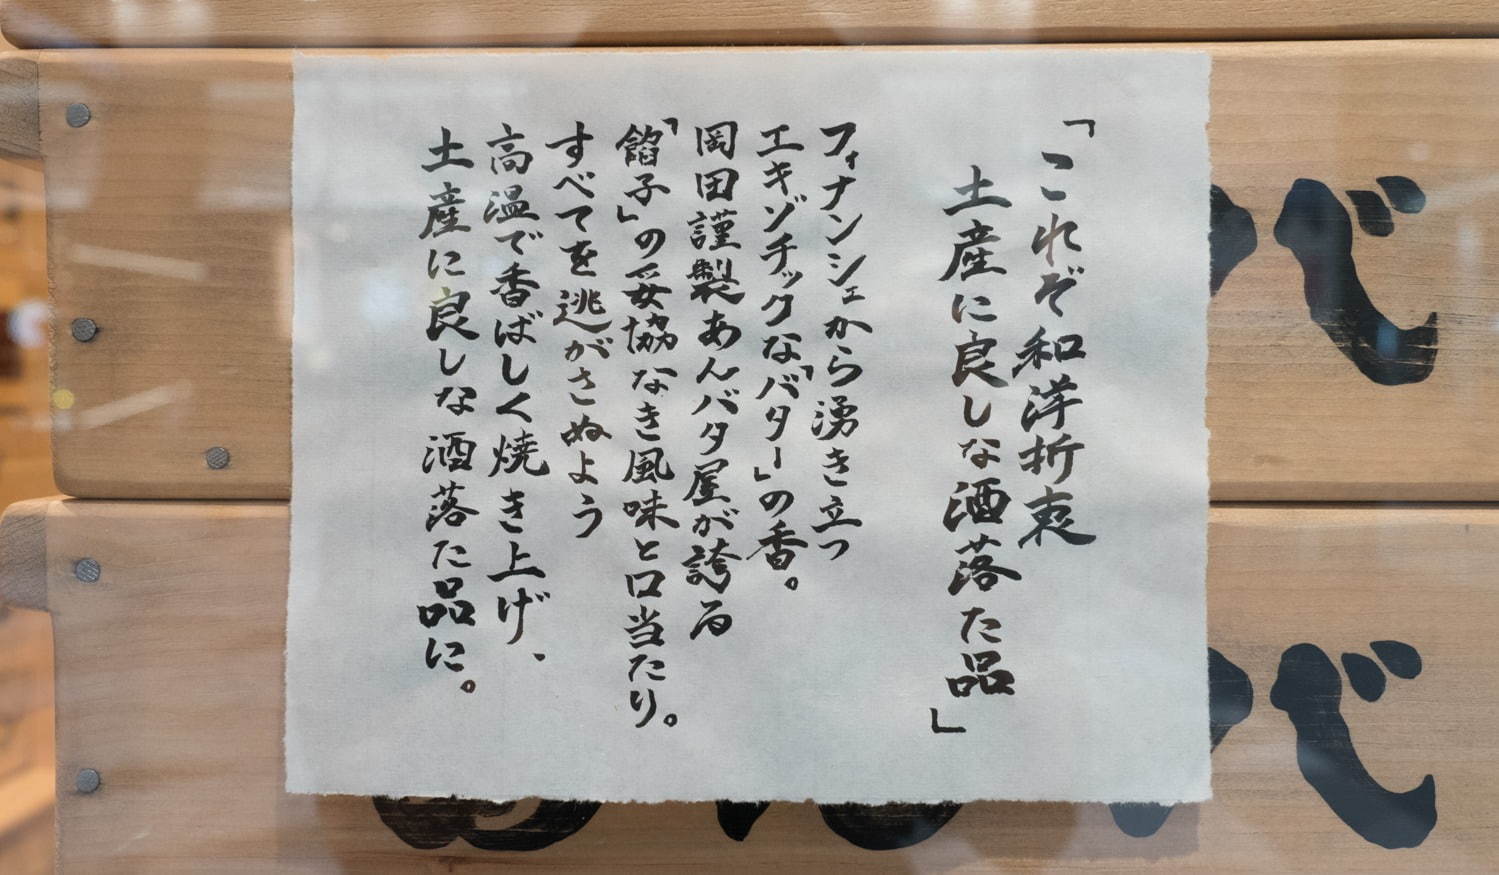 「これぞ和洋折衷
土産に良しな洒落た品」
フィナンシェから湧き立つ
エキゾチックな「バター」の香。
岡田謹製あんバタ屋が誇る
「餡子」の妥協なき風味と口当たり。
すべてを逃がさぬよう
高温で香ばしく焼き上げ、
土産に良しな洒落た品に。